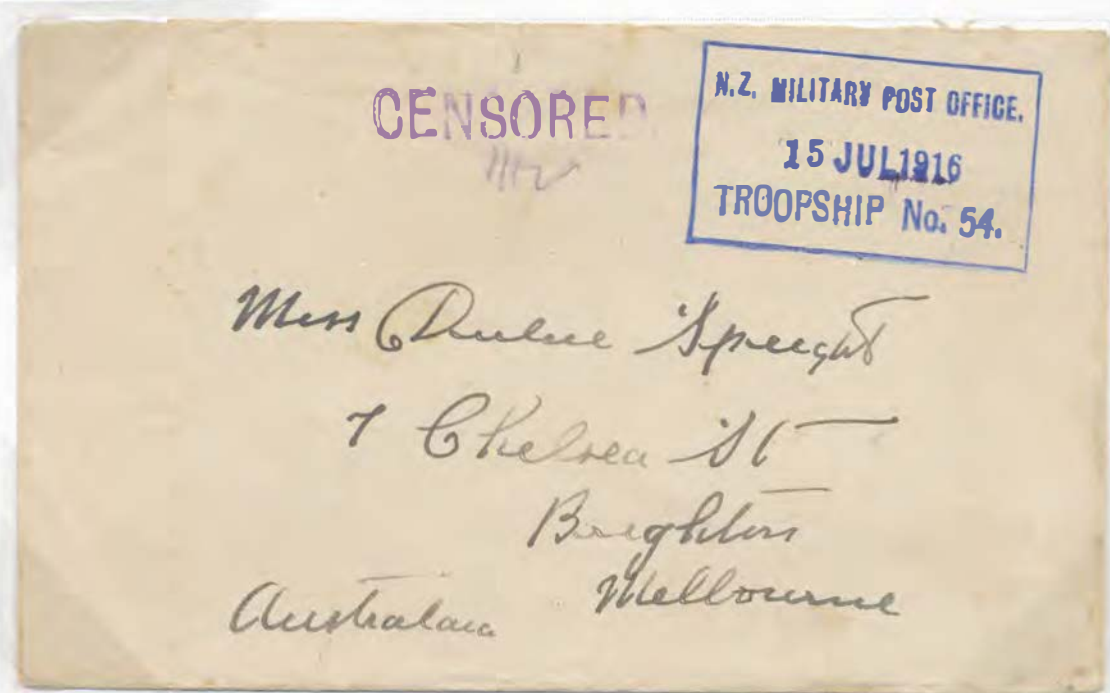 CENSORED
N.Z. MILITARY POST OFFICE.
15 JUL 1916
TROOPSHIP No. 54.
Miss Speight
7 Chelsea St
Brighton
Melbourne
Australia